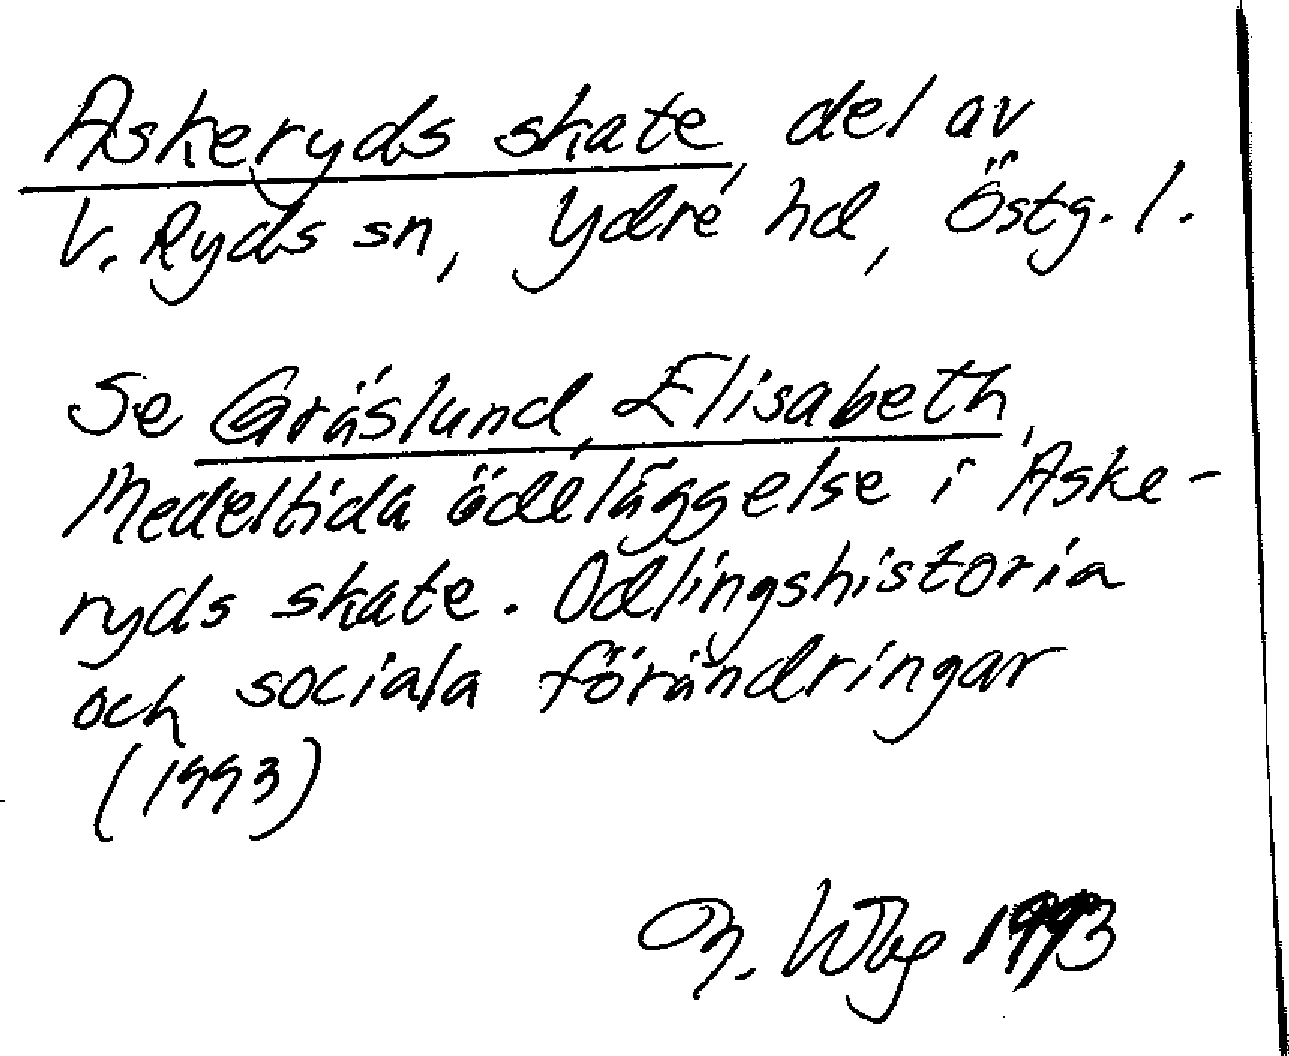 Askeryds skate, del av
V. Ryds sn, Ydre hd, Östg. l.
Se Gräslund, Elisabeth,
Medeltida ödeläggelse i Aske-
ryds skate. Odlingshistoria
och sociala förändringar
(1993)
1993